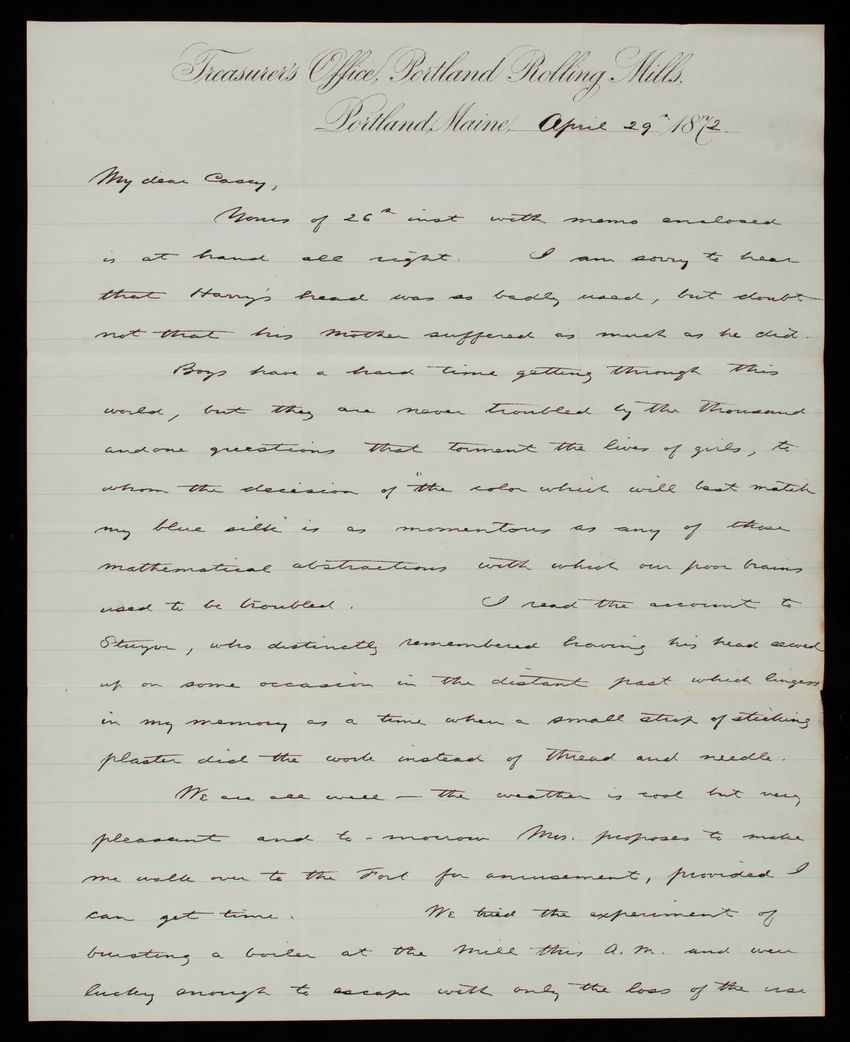 Treasurer's Office, Portland Rolling Mills,
Portland, Maine, April 29th 1872.
My dear Casey,
Yours of 26th inst with memo enclosed
is at hand all right. I am sorry to hear
that Harry's head was so badly used, but doubt
not that his mother suffered as much as he did.
Boys have a hard time getting through this
world, but they are never troubled by the thousand
and one questions that torment the lives of girls, to
whom the decision of "the color which will best match
my blue silk" is as momentous as any of those
mathematical abstractions with which our poor brains
used to be troubled. I read the account to
who distinctly remembered having his head sewed
up on some occasion in the distant past which lingers
in my memory as a time when a small strip of sticking
plaster did the work instead of thread and needle.
We are all well — the weather is cool but very
pleasant and to-morrow Mrs. proposes to make
me walk over to the Fort for amusement, provided I
can get time. We tried the experiment of
bursting a boiler at the Mill this A.M. and were
lucky enough to escape with only the loss of the use